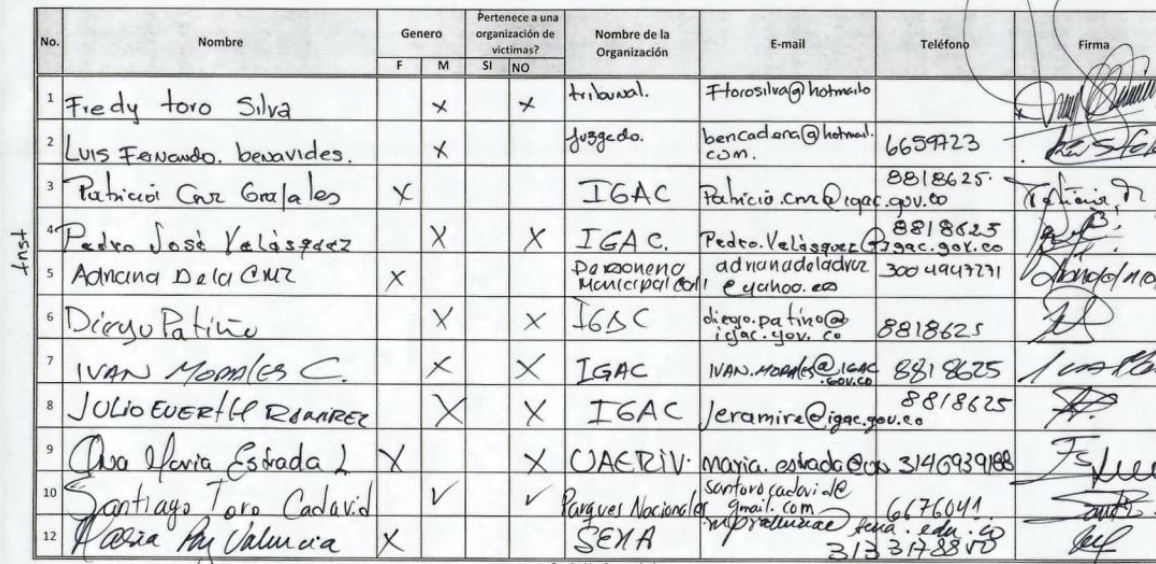 No. Nombre Genero Pertenece a una organización de victimas? Nombre de la Organización E-mail Teléfono Firma
F M SI NO
1 Fredy toro Silva X X tribunal. Ftorosilva@hotmail.co
2 Luis Fernando. benavides. X Juzgado. bencadera@hotmail.com. 6659723
3 Patricia Cruz Grajales X IGAC Patricio.cruz@igac.gov.co 8818625.
4 Pedro José Velásquez X X IGAC. Pedro.Velasquez@igac.gov.co 8818625
5 Adriana De la Cruz X Personeria Municipal Cali adrianadeladruz@yahoo.es 3004947271
6 Diego Patiño X X IGAC diego.patino@igac.gov.co 8818625
7 IVAN MORALES C. X X IGAC IVAN.MORALES@IGAC.GOV.CO 8818625
8 JULIO EVERTH RAMIREZ X X IGAC jeramire@igac.gov.co 8818625
9 Ana Maria Estrada L X X UAERIV. maria.estrada@ 3146939188
10 Santiago Toro Cadavid ✓ ✓ Parques Nacionales santorocadavid@gmail.com 6676041
12 Maria Paz Valencia X SENA mpvalencia@sena.edu.co
Inst